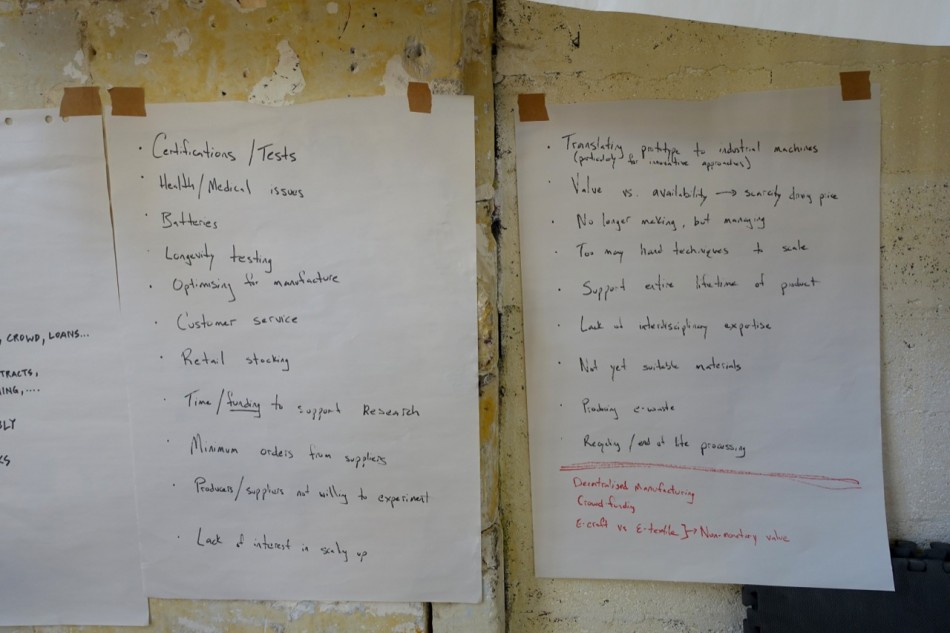 , CROWD, LOANS...
TRACTS,
ING, ....
BLY
KS
· Certifications / Tests
· Health/Medical issues
· Batteries
· Longevity testing
· Optimising for manufacture
· Customer service
· Retail stocking
· Time/funding to support Research
· Minimum orders from suppliers
· Producers/suppliers not willing to experiment
· Lack of interest in scaling up
· Translating prototype to industrial machines
(particularly for innovative approaches)
· Value vs. availability → scarcity driving price
· No longer making, but managing
· Too many hand techniques to scale
· Support entire lifetime of product
· Lack of interdisciplinary expertise
· Not yet suitable materials
· Producing e-waste
· Recycling / end of life processing
Decentralised manufacturing
Crowdfunding
E-craft vs E-textile } → Non-monetary value